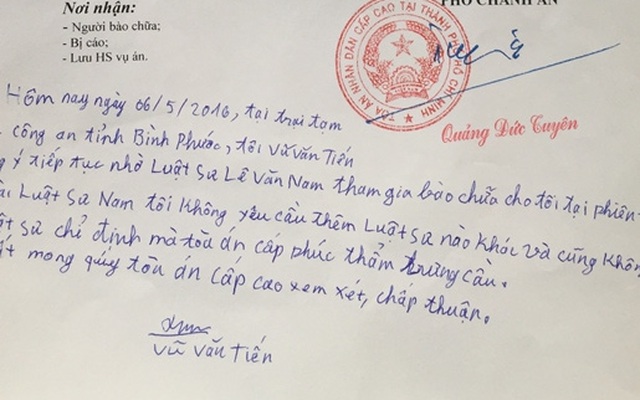 Nơi nhận:
PHÓ CHÁNH ÁN
- Người bào chữa;
- Bị cáo;
- Lưu HS vụ án.
TÒA ÁN NHÂN DÂN CẤP CAO TẠI THÀNH PHỐ HỒ CHÍ MINH
Quảng Đức Tuyên
Hôm nay ngày 06/5/2016, tại trại tạm
công an tỉnh Bình Phước, tôi Vũ Văn Tiến
ý tiếp tục nhờ Luật sư Lê Văn Nam tham gia bào chữa cho tôi tại phiên
Luật sư Nam tôi không yêu cầu thêm Luật sư nào khác và cũng không
sư chỉ định mà tòa án cấp phúc thẩm trưng cầu.
mong quý tòa án cấp cao xem xét, chấp thuận.
Vũ Văn Tiến